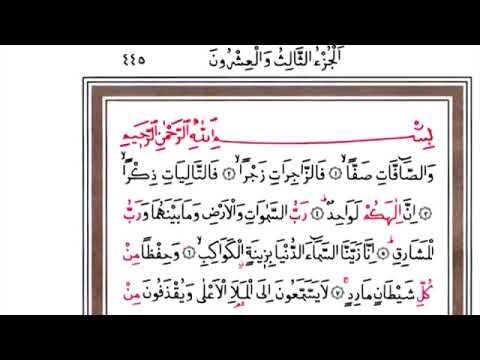 اَلْجُزْءُ الثَّالِثُ وَالْعِشْرُونَ ٤٤٥
بِسْمِ اللّٰهِ الرَّحْمٰنِ الرَّحِيمِ
وَالصَّٓافَّاتِ صَفًّاۙ ﴿١﴾ فَالزَّاجِرَاتِ زَجْرًاۙ ﴿٢﴾ فَالتَّالِيَاتِ ذِكْرًاۙ
﴿٣﴾ اِنَّ اِلٰهَكُمْ لَوَاحِدٌۜ ﴿٤﴾ رَبُّ السَّمٰوَاتِ وَالْاَرْضِ وَمَا بَيْنَهُمَا وَرَبُّ
الْمَشَارِقِۜ ﴿٥﴾ اِنَّا زَيَّنَّا السَّمَٓاءَ الدُّنْيَا بِزِينَةٍۨ الْكَوَاكِبِۙ ﴿٦﴾ وَحِفْظًا مِنْ
كُلِّ شَيْطَانٍ مَارِدٍۚ ﴿٧﴾ لَا يَسَّمَّعُونَ اِلَى الْمَلَاِ الْاَعْلٰى وَيُقْذَفُونَ مِنْ